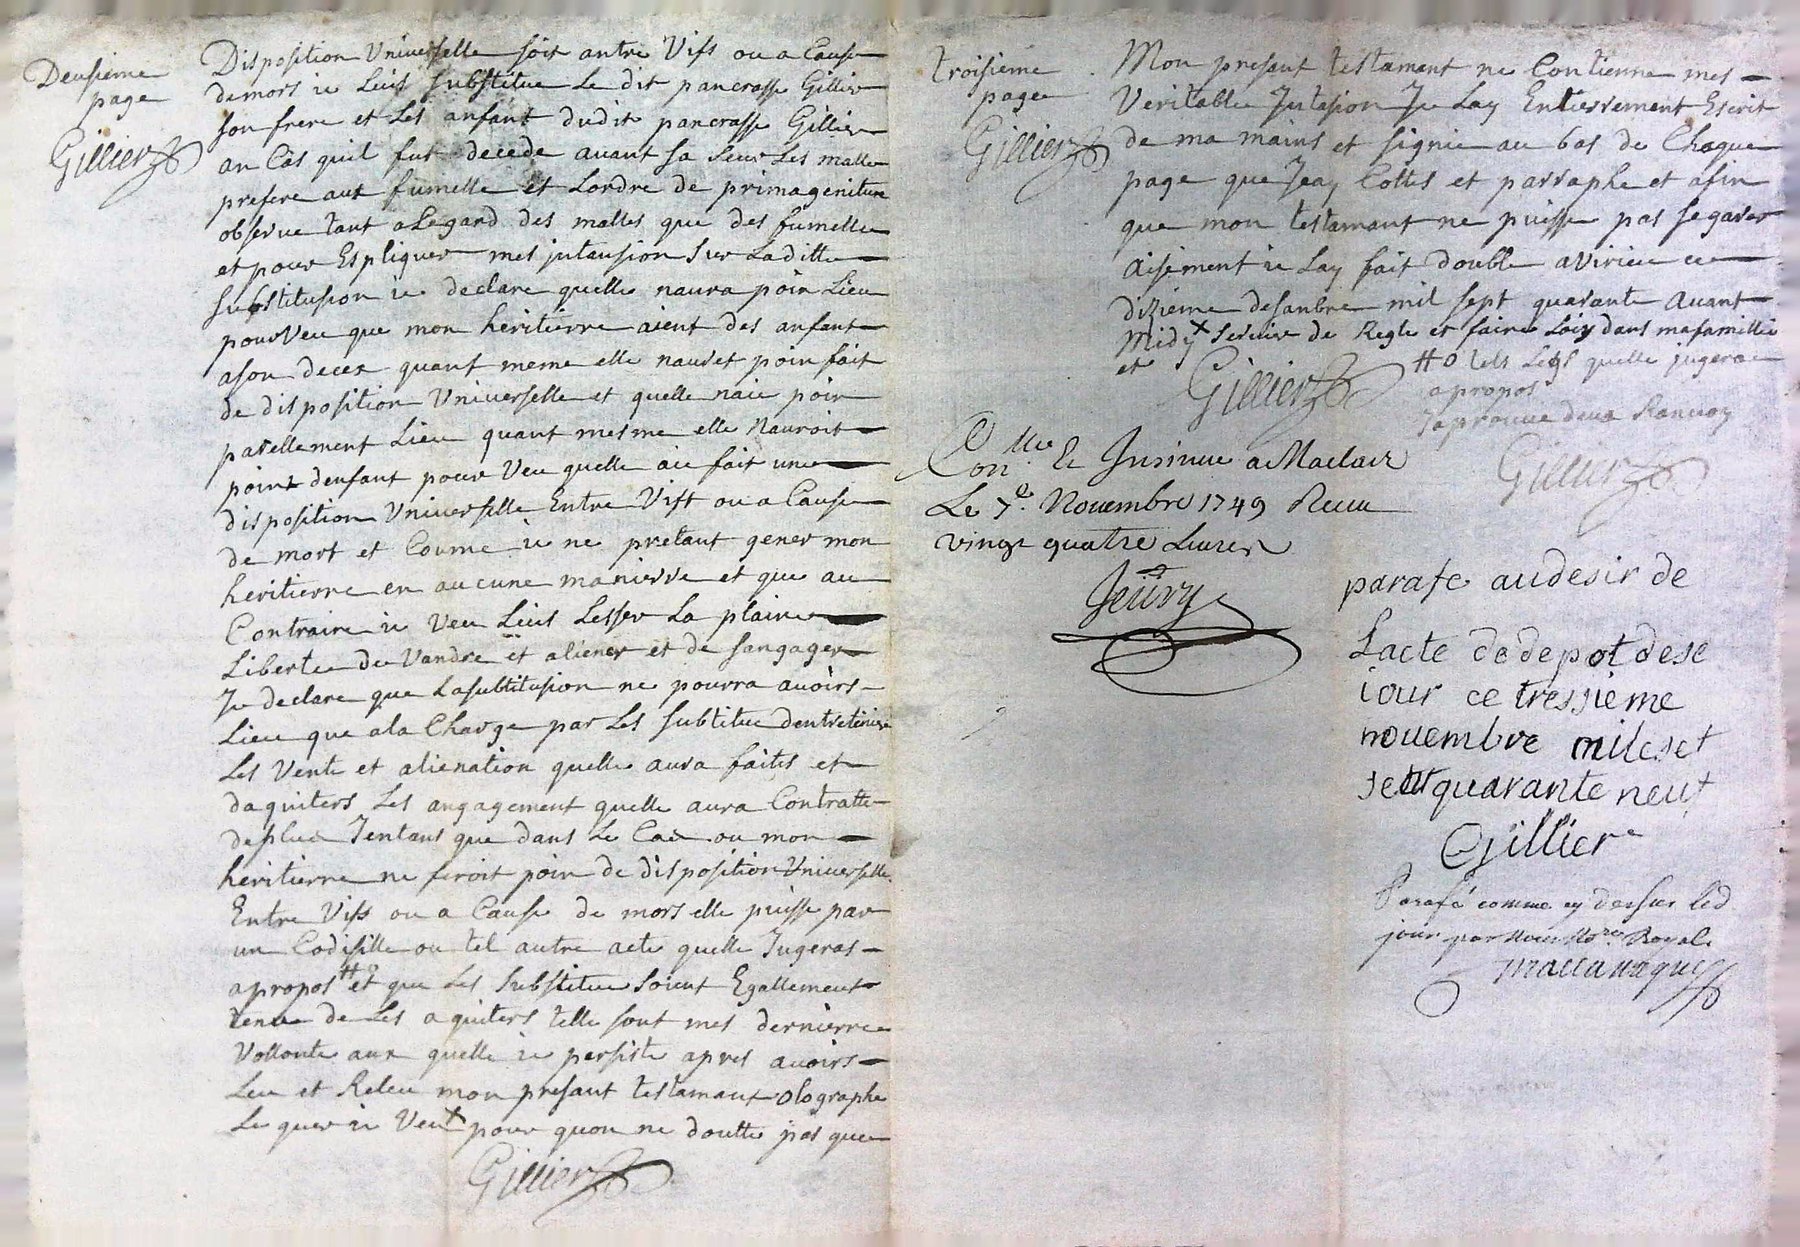 Deusieme
page
Gillier
Disposition Universelle soit antre Vifs ou a Cause
de mors ie Luis substitue Le dit pancrasse Gillier
son frere et Les anfant dudit pancrasse Gillier
an Cas quil fut decede auant sa seur Les malle
prefere aux fumelle et Lordre de primageniture
obserue tant a Legard des malles que des fumelle
et pour Espliquer mes jntansion sur Laditte
substitusion ie declare quelle naura poin Lieu
pourveu que mon heritierre aient des anfant
ason deces quant meme elle nauret poin fait
de disposition Universelle et quelle naie poin
parellement Lieu quant mesme elle Nauroit
point denfant pour Veu quelle aie fait une
disposition Universelle Entre Vift ou a Cause
de mort et Coume ie ne pretant gener mon
heritierre en aucune manierre et que au
Contraire ie Veu Luis Lesser La plaine
Liberte de Vandre et aliener et de sangager
Je declare que Lasubtitusion ne pourra auoirs
Lieu que ala Charge par Les subtitue dentretenire
Les Vente et alienation quelle aura faites et
daquiters Les angagement quelle aura Contratte
deplus Jentans que dans Le Cas ou mon
heritierre ne feroit poin de disposition Universelle
Entre Vifs ou a Cause de mors elle puisse par
un Codisille ou tel autre acte quelle Jugeras
apropos # et que Les substitue soient Egallement
tenue de Les aquiters telle sont mes dernierre
Vollonte aux quelle ie persiste apres auoirs
Leu et Releu mon presant testamant olographe
Le quer ie Veut pour quon ne doutte pas que
Gillier
troisieme
page
Gillier
Mon presant testamant ne Contienne mes
Veritable Jntasion Je Lay Entierrement Escrit
de ma mains et signie au bas de Chaque
page que Jeay Cottes et parraphe et afin
que mon testamant ne puisse pas segarer
aisement ie Lay fait double a Virieu ce
dizieme desanbre mil sept quarante auant
midy x seruire de Regle et faire Loiy dans mafamillie
et
Gillier
# o tels Legs quelle jugera
apropos
Japrouue deux Ranuoy
Gillier
Con.lle & Insinue a Maclas
Le 7e. Nouembre 1749 Receu
vingt quatre Liures
Jeuvry
parafe audesir de
Lacte de depot dese
iour ce tressieme
nouembre mileset
sett quarante neuf
Gillier
Parafé comme cy dessus led
jour par Nous No.re Royal